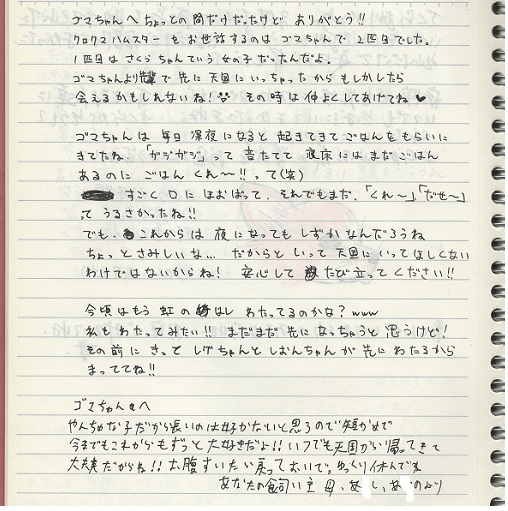 ゴマちゃんへ ちょっとの間だけだったけど ありがとう!!
クロクマハムスターをお世話するのはゴマちゃんで2匹目でした。
1匹目はさくらちゃんていう女の子だったんだよ。
ゴマちゃんより で先に天国にいっちゃったからもしかしたら
会えるかもしれないね! その時は仲よくしてあげてね♥
ゴマちゃんは毎日深夜になると起きてきてごはんをもらいに
きてたね、「ガジガジ」って音たてて 寝床にはまだごはん
あるのに ごはんくれ〜!!って(笑)
すごく口にほおばって、それでもまだ、「くれ〜」「だせ〜」
ってうるさかったね!!
でも、これからは夜になってもしずかなんだろうね
ちょっとさみしいな… だからといって天国にいってほしくない
わけではないからね! 安心してたび立ってください!!
今頃はもう虹のはしわたってるのかな?www
私もわたってみたい!! まだまだ先になっちゃうと思うけど!
その前にきっとレゲちゃんとしばんちゃんが先にわたるから
まっててね!!
ゴマちゃんへ
やんちゃな子だから長いのは好かないと思うので短かめで
今までもこれからもずっと大好きだよ!! いつでも天国から帰ってきて
大丈夫だからね!! お腹すいたら戻っておいで。ゆっくり休んでネ
あなたの飼い主 母、あ し、あ のより